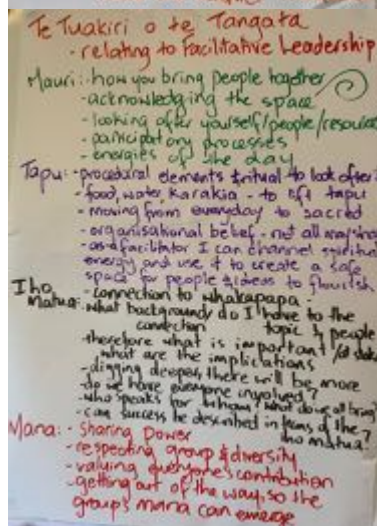 Te Tuakiri o te Tangata
- relating to Facilitative Leadership
Mauri: - how you bring people together
- acknowledging the space
- looking after yourself/people/resources
- participatory processes
- energies of the day
Tapu: - procedural elements & ritual to look after
- food, water, karakia - to lift tapu
- moving from everyday to sacred
- organisational belief - not all
- as a facilitator I can channel spiritual
energy and use it to create a safe
space for people & ideas to flourish
Iho matua: - connection to whakapapa -
- what background do I have to the
connection topic & people
- therefore what is important
- what are the implications
- digging deeper, there will be more
- do we have everyone involved?
- who speaks for whom? what do we all bring?
- can success be described in terms of the
iho matua?
Mana: - sharing power
- respecting group & diversity
- valuing everyone's contribution
- getting out of the way, so the
group's mana can emerge